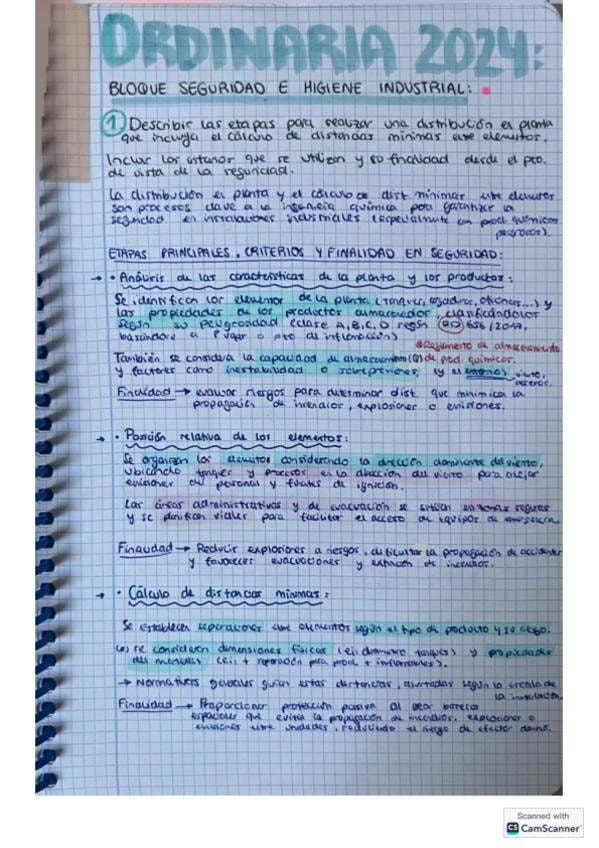 ORDINARIA 2024:
BLOQUE SEGURIDAD E HIGIENE INDUSTRIAL:
① Describir las etapas para realizar una distribución en planta
que incluya el cálculo de distancias mínimas entre elementos.
Incluir los criterios que se utilizan y su finalidad desde el pto.
de vista de la seguridad.
La distribución en planta y el cálculo de dist. mínimas entre elementos
son procesos clave en la ingeniería química para garantizar la
seguridad en instalaciones industriales (especialmente con prod. químicos
peligrosos).
ETAPAS PRINCIPALES, CRITERIOS Y FINALIDAD EN SEGURIDAD:
→ • Análisis de las características de la planta y los productos:
Se identifican los elementos de la planta (tanques, oficinas...) y
las propiedades de los productos almacenados, clasificándolos
según su peligrosidad (clase A, B, C, D según RD 656/2017,
basándose en P vapor o pto de inflamación)
Reglamento de almacenamiento
También se considera la capacidad de almacenamiento (Q) de prod. químicos.
y factores como inestabilidad o sobrepresiones, (y el entorno)
Finalidad → evaluar riesgos para determinar dist. que minimica la
propagación de incendios, explosiones o emisiones.
→ • Posición relativa de los elementos:
Se organizan los elementos considerando la dirección dominante del viento,
ubicando tanques y procesos en la dirección del viento para alejar
emisiones del personal y fuentes de ignición.
Las áreas administrativas y de evacuación se sitúan en zonas seguras
y se planifican viales para facilitar el acceso de equipos de emergencia.
Finalidad → Reducir explosiones a riesgos, dificultar la propagación de accidentes
y favorecer evacuaciones y extinción de incendios.
→ • Cálculo de distancias mínimas:
Se establecen separaciones entre elementos según el tipo de producto y su riesgo.
se consideran dimensiones físicas (ej: diámetro tanques) y propiedades
del (ej: + separación para prod. + inflamables).
→ Normativas generales guían estas distancias, ajustadas según la escala de
la instalación.
Finalidad → Proporcionar protección pasiva al crear barreras
espaciales que eviten la propagación de incendios, explosiones o
emisiones entre unidades, reduciendo el riesgo de efectos dominó.
Scanned with
CS CamScanner